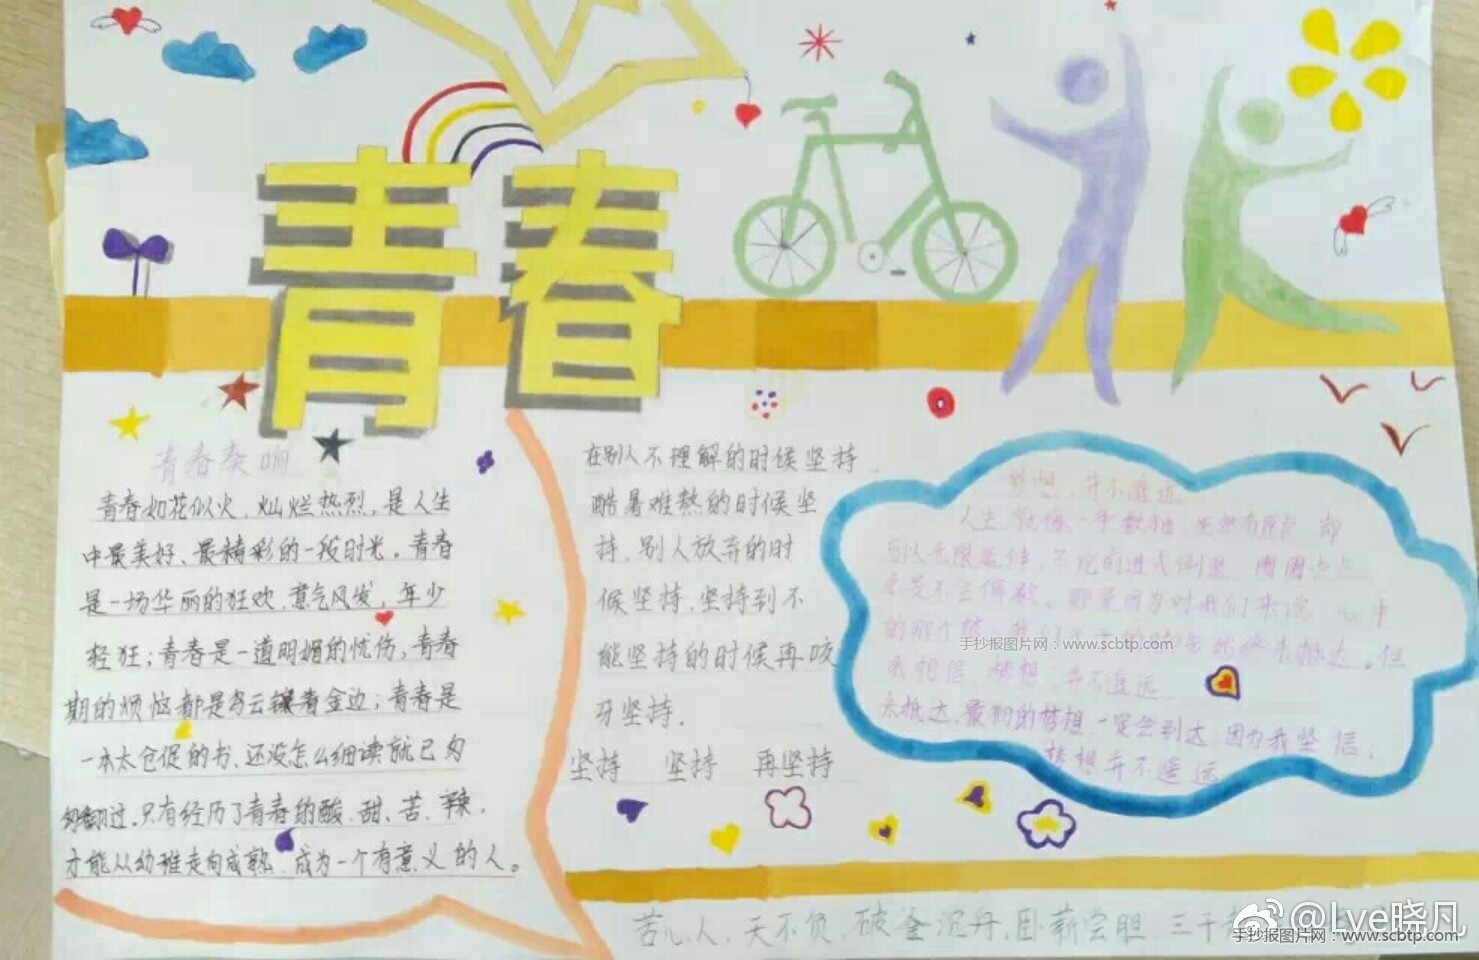 青春
青春奏响
青春如花似火，灿烂热烈，是人生
中最美好、最精彩的一段时光。青春
是一场华丽的狂欢，意气风发，年少
轻狂；青春是一道明媚的忧伤，青春
期的烦恼都是乌云镶着金边；青春是
一本太仓促的书，还没怎么细读就已匆
匆翻过。只有经历了青春的酸、甜、苦、辣，
才能从幼稚走向成熟，成为一个有意义的人。
在别人不理解的时候坚持
酷暑难熬的时候坚
持，别人放弃的时
候坚持，坚持到不
能坚持的时候再咬
牙坚持。
坚持 坚持 再坚持
梦想，并不遥远
人生就像一个数轴，虽然有原点，却
可以无限延伸，不论前进或倒退
心中
的那个梦
未抵达。但
我相信，梦想，并不遥远。
未抵达，最初的梦想一定会到达，因为我坚信：
梦想并不遥远
手抄报图片网：www.scbtp.com
苦心人，天不负，破釜沉舟，卧薪尝胆，三千
@Lve晓凡
手抄报图片网：www.scbtp.com